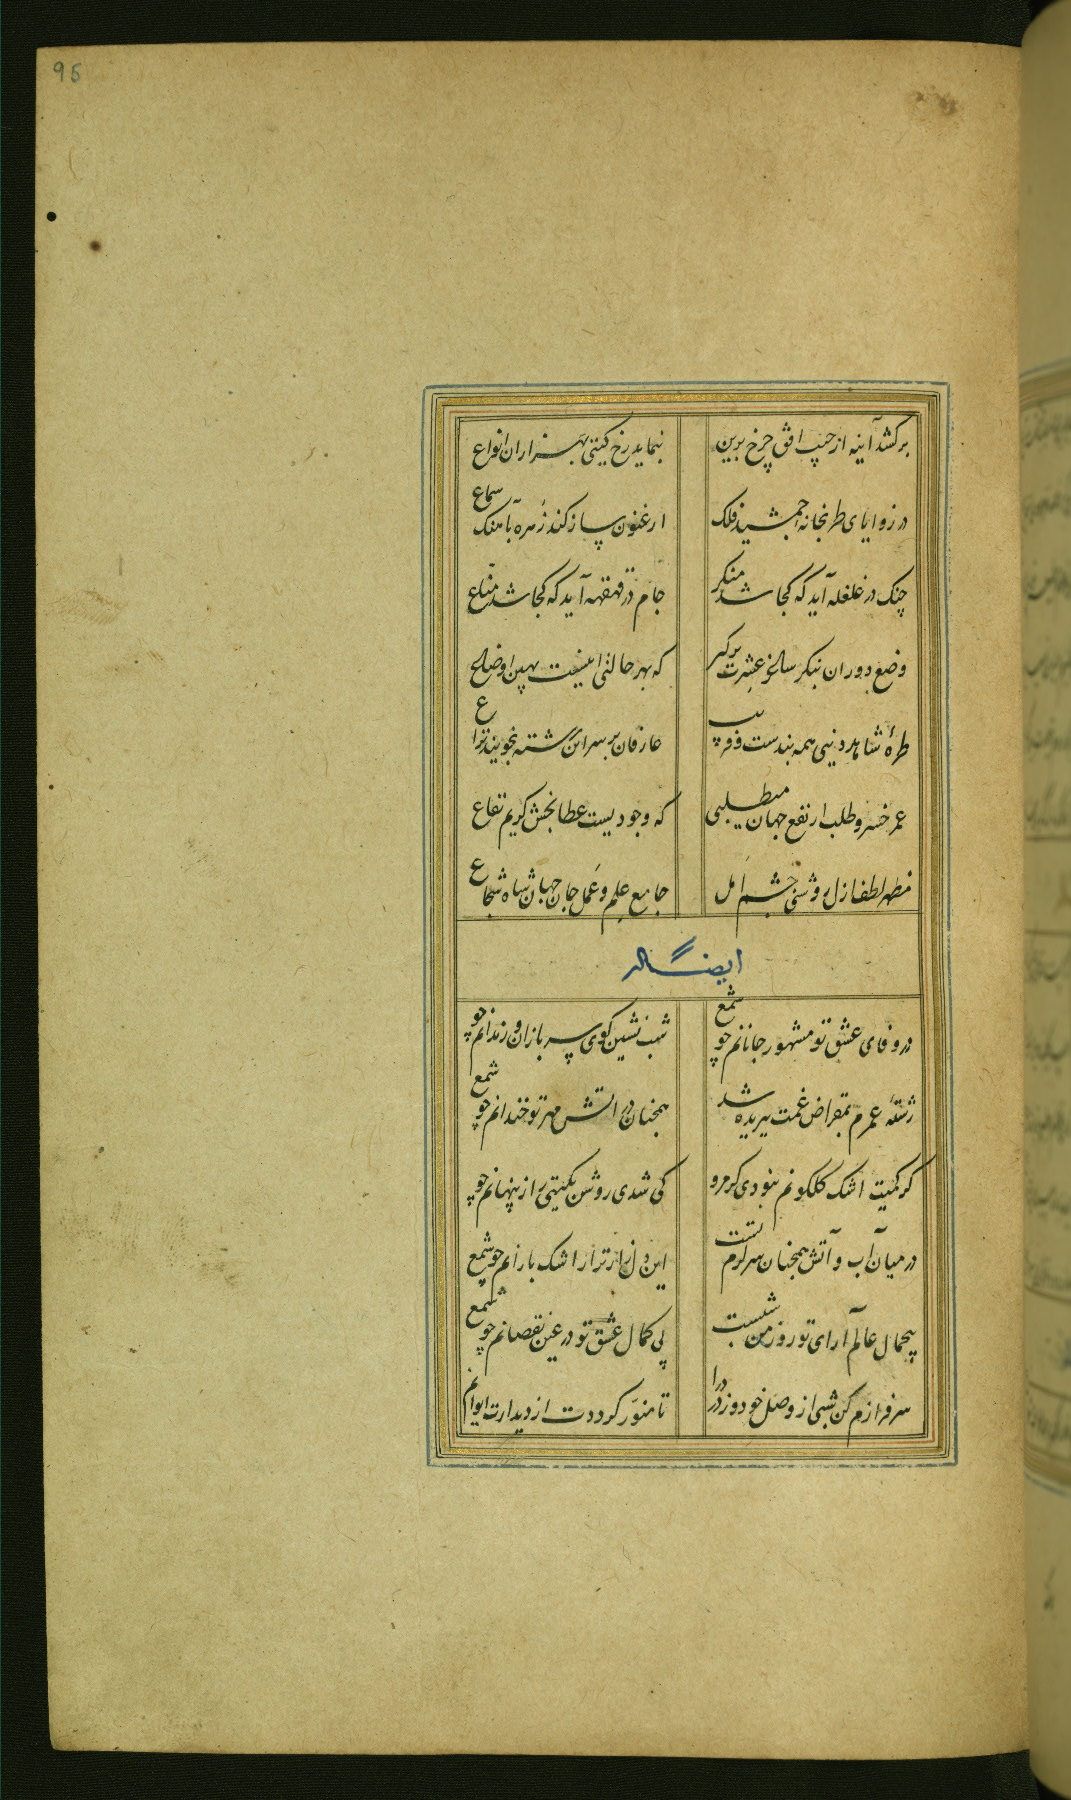 95
برکشد آینه از جیب افق چرخ برین
بنماید رخ کیتی بهزاران انواع
در زوایای طربخانه جمشید فلک
ارغنون ساز کند زهره بآهنک سماع
چنک در غلغله آید که کجا شد منکر
جام در قهقهه آید که کجا شد مناع
وضع دوران بنکر ساغر عشرت برکیر
که بهر حالتی اینست بهین اوضاع
طرهٔ شاهد دنیی همه بندست و فریب
عارفان بر سر این رشته نجویند نزاع
عمر خسرو طلب ار نفع جهان میطلبی
که وجودیست عطابخش کریم نفاع
مظهر لطف ازل روشنی چشم امل
جامع علم و عمل جان جهان شاه شجاع
ایضا له
در وفای عشق تو مشهور جانانم چو شمع
شب نشین کوی سربازان و رندانم چو
رشتهٔ عمرم بمقراض غمت ببریده شد
همچنان در آتش مهر تو خندانم چو شمع
کر کمیت اشک کلکونم نبودی کرم رو
کی شدی روشن بکیتی راز پنهانم چو
در میان آب و آتش همچنان سرکرم تست
این دل زار نزار اشک بارانم چو شمع
بیجمال عالم آرای تو روز من شبست
بی کمال عشق تو در عین نقصانم چو شمع
سرفرازم کن شبی از وصل خود
تا منور کردد از دیدارت ایوانم